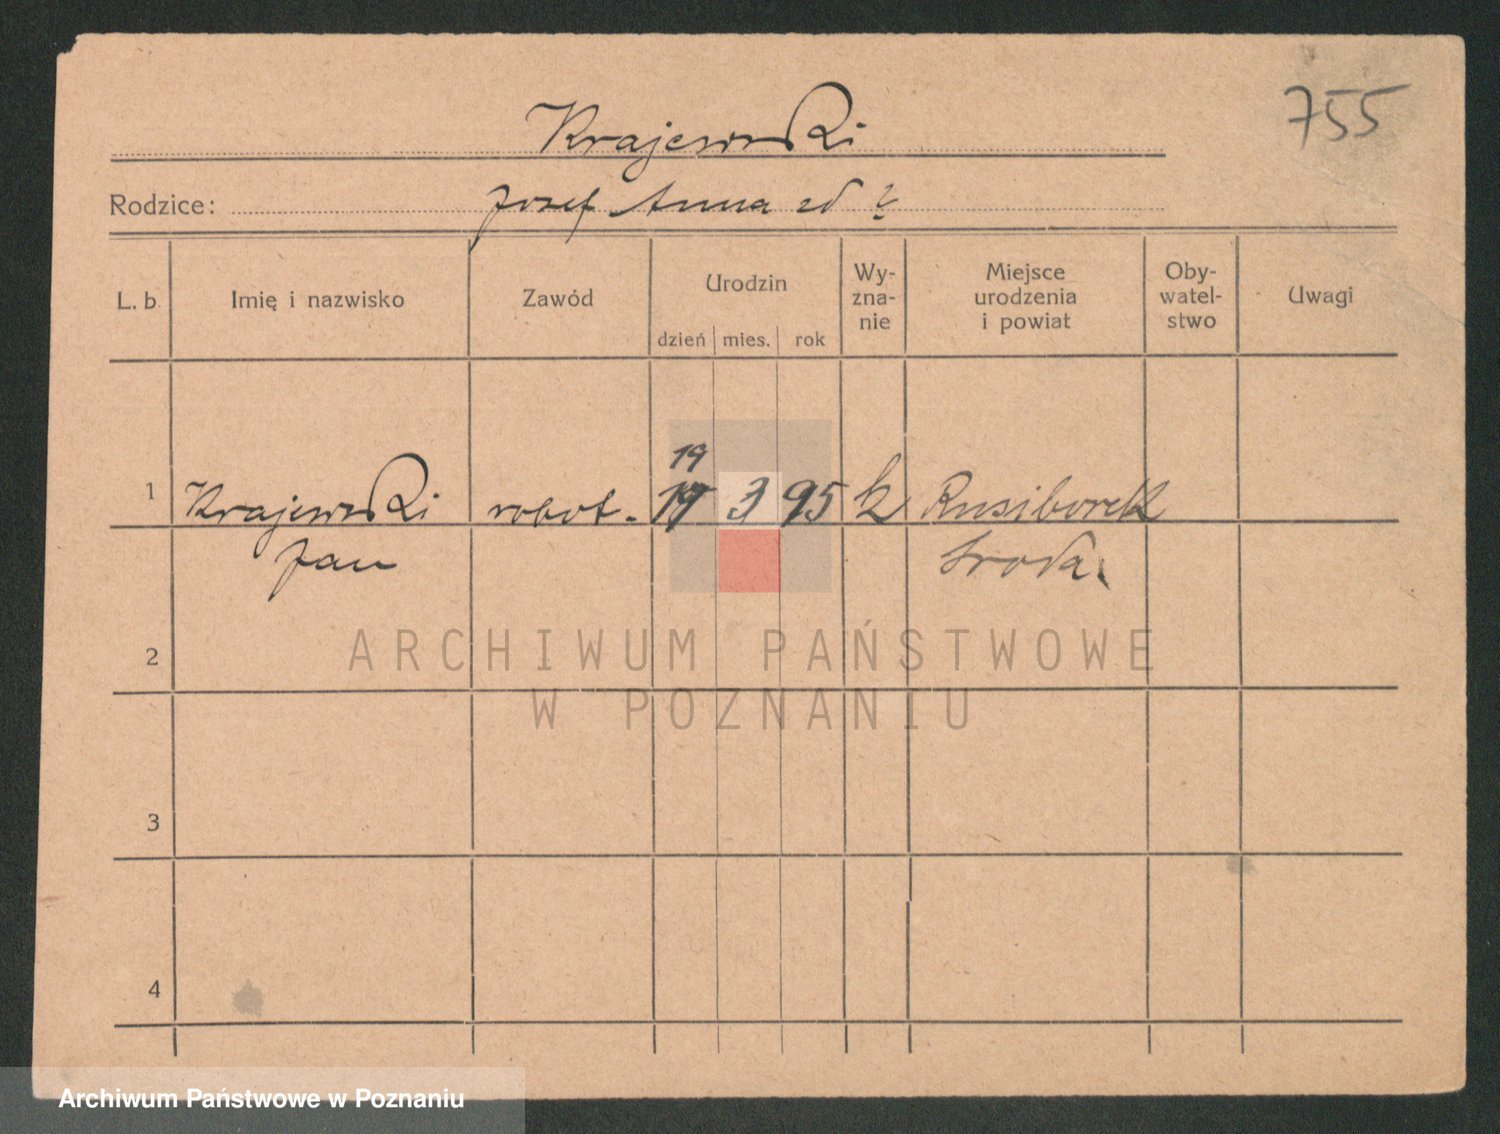 755
Krajewski
Rodzice: Josef Anna zd ?
L. b. Imię i nazwisko Zawód Urodzin dzień mies. rok Wy-zna-nie Miejsce urodzenia i powiat Oby-watel-stwo Uwagi
19
1 Krajewski robot. 19 3 95 k Rusiborek
Jan Środa.
2
ARCHIWUM PAŃSTWOWE
W POZNANIU
3
4
Archiwum Państwowe w Poznaniu